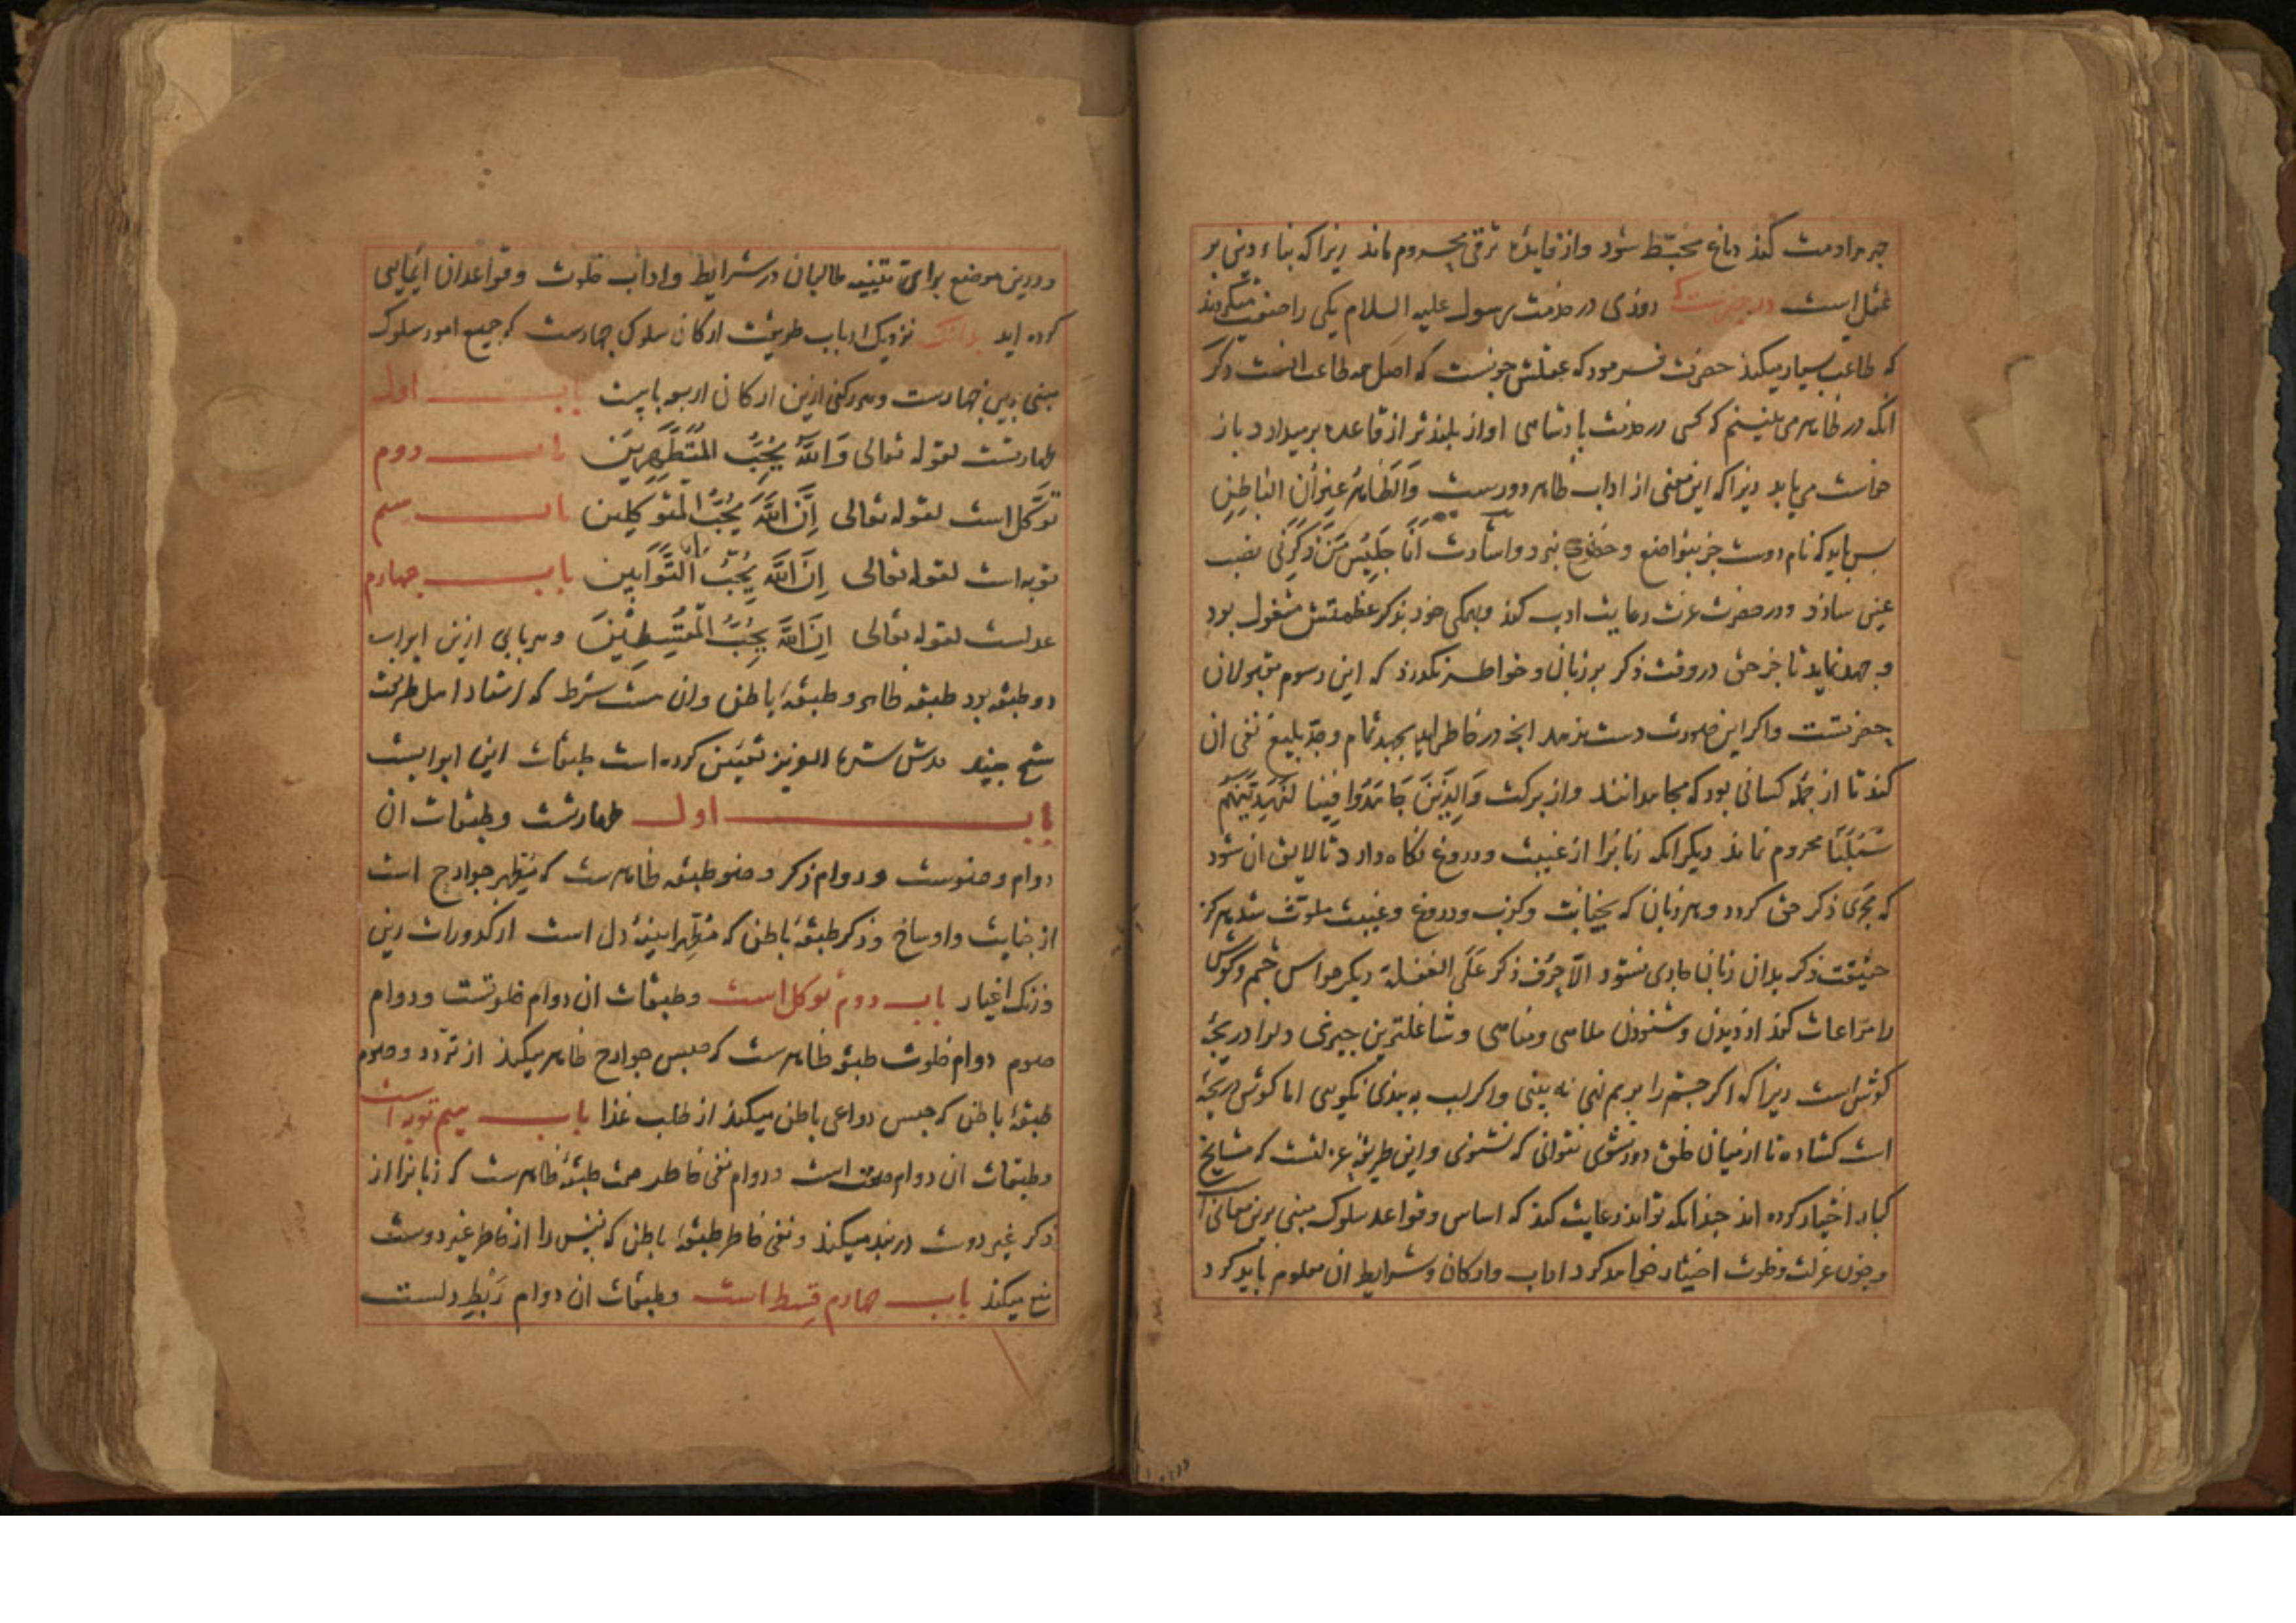 جبر مداومت کند دماغ مخبّط شود و از فایدهٔ ترقی محروم ماند زیرا که بناء دین بر
عقل است در خبرست که روزی در خدمت رسول علیه السلام یکی را صفت میکردند
که طاعت بسیار میکند حضرت فرمود که عقلش چونست که اصل همه طاعت انست دکر
انکه در ظاهر می بینیم که کسی در خدمت پادشاهی اواز بلندتر از قاعده برمیدارد باز
خواست می یابد زیرا که این معنی از اداب ظاهر دورست وَالظَّاهِرُ عِنوَانُ البَاطِنِ
پس باید که نام دوست جز بتواضع و خضوع نبرد و اشارت اَنَا جَلِیسُ مَن ذَکَرَنی نصب
عین سازد و در حضرت عزت رعایت ادب کند و بهمکی خود بذکر عظمتش مشغول بود
و جهد نماید تا جز حق در وقت ذکر بر زبان و خواطر نکذرد که این رسوم مقبولان
حضرتست و اکر این صورت دست ندهد انچه در خاطر اید بجهد تمام و جدّ بلیغ نفی ان
کند تا از جمله کسانی بود که مجاهدانند و از برکت وَالَّذِینَ جَاهَدُوا فِینَا لَنَهدِیَنَّهُم
سُبُلَنَا محروم نماند دیکر انکه زبانرا از غیبت و دروغ نکاه دارد تا لایق ان شود
که مجرَی ذکر حق کردد و هر زبان که بخیانت و کذب و دروغ و غیبت ملوّث شد هرکز
حقیقت ذکر بدان زبان جاری نشود الّا حَرفَ ذکر عَلَی الغفلة دیکر حواس چشم و کوش
را مراعات کند از دیدن و شنودن ملاهی و مناهی و شاغلترین چیزی دلرا دریچهٔ
کوش است زیرا که اکر چشم را برهم نهی نه بینی و اکر لب به بندی نکویی اما کوش دریچهٔ
است کشاده تا از میان خلق دور نشوی نتوانی که نشنوی و این طریقهٔ عزلتست که مشایخ
کبار اختیار کرده اند چندانکه تواند رعایت کند که اساس و قواعد سلوک مبنی برین معانی است
و چون عزلت و خلوت اختیار خواهد کرد اداب و ارکان و شرایط ان معلوم باید کرد
و درین موضع برای تنبیه طالبان در شرایط و اداب خلوت و قواعد ان ایمایی
کرده اید بدانک نزدیک ارباب طریقت ارکان سلوک چهارست که جمیع امور سلوک
مبنی برین چهارست و هر رکنی ازین ارکان اربعه بابیست باب اول
طهارتست لقوله تعالی وَاللَّهُ یُحِبُّ المُتَطَهِّرِینَ باب دوم
توکّل است لقوله تعالی اِنَّ اللَّهَ یُحِبُّ المُتَوَکِّلِین باب سیم
توبه است لقوله تعالی اِنَّ اللَّهَ یُحِبُّ التَّوَّابِین باب چهارم
عدلست لقوله تعالی اِنَّ اللَّهَ یُحِبُّ المُقسِطِینَ و هر بابی ازین ابواب
دو طبقه بود طبقه ظاهر و طبقهٔ باطن و ان هشت شرط که استاد اهل طریقت
شیخ جنید قدس سره العزیز تعیین کرده است طبقات این ابوابست
باب اول طهارتست و طبقات ان
دوام وضوست و دوام ذکر وضو طبقه ظاهرست که مُطَهِّر جوارح است
از جنابت و اوساخ و ذکر طبقهٔ باطن که مُطَهِّر ایینهٔ دل است از کدورات رین
و زنک اغیار باب دوم توکل است و طبقات ان دوام خلوتست و دوام
صوم دوام خلوت طبقهٔ ظاهرست که حبس جوارح ظاهر میکند از تردد و صوم
طبقهٔ باطن که حبس دواعی باطن میکند از طلب غذا باب سیم توبه است
و طبقات ان دوام صمت است و دوام نفی خاطر صمت طبقهٔ ظاهرست که زبانرا از
ذکر غیر دوست در بند میکند و نفی خاطر طبقهٔ باطن که نفس را از خاطر غیر دوست
منع میکند باب چهارم قسط است و طبقات ان دوام رَبطِ دلست